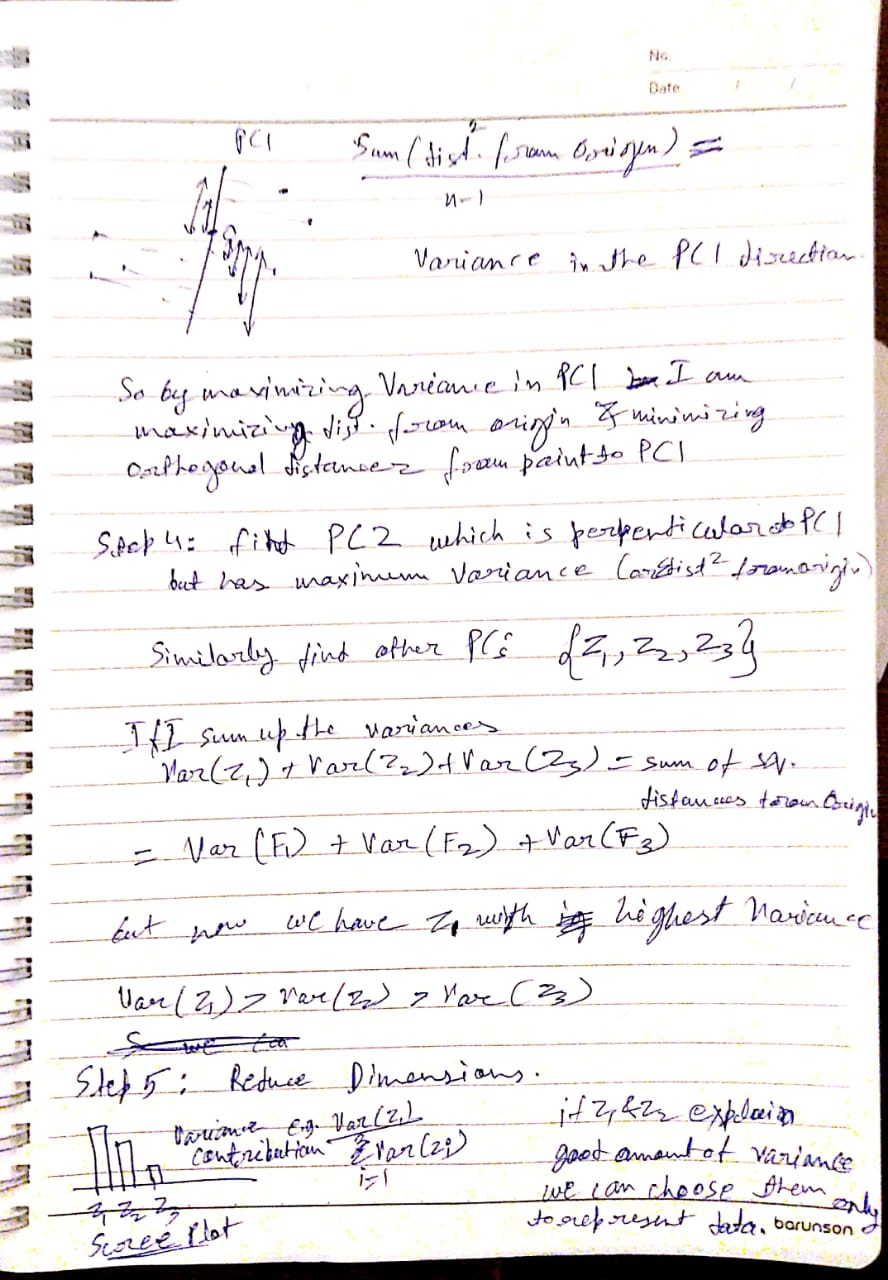 No.
Date / /
PC1
Sum (dist.² from Origin) =
n-1
Variance in the PC1 direction
So by maximizing Variance in PC1 I am
maximizing dist. from origin & minimizing
Orthogonal distances from point to PC1
Step 4: find PC2 which is perpendicular to PC1
but has maximum Variance (or dist² from origin)
Similarly find other PCs {Z1, Z2, Z3}
If I sum up the variances
Var(Z1) + Var(Z2) + Var(Z3) = sum of sq.
distances from Origin
= Var(F1) + Var(F2) + Var(F3)
but now we have Z1 with highest Variance
Var(Z1) > Var(Z2) > Var(Z3)
S we can
Step 5: Reduce Dimensions.
Variance contribution E.g. Var(Z1)
Σ Var(Zi)
i=1
Z1 Z2 Z3
Scree Plot
if Z1 & Z2 explain
good amount of variance
we can choose them only
to represent data.
barunson